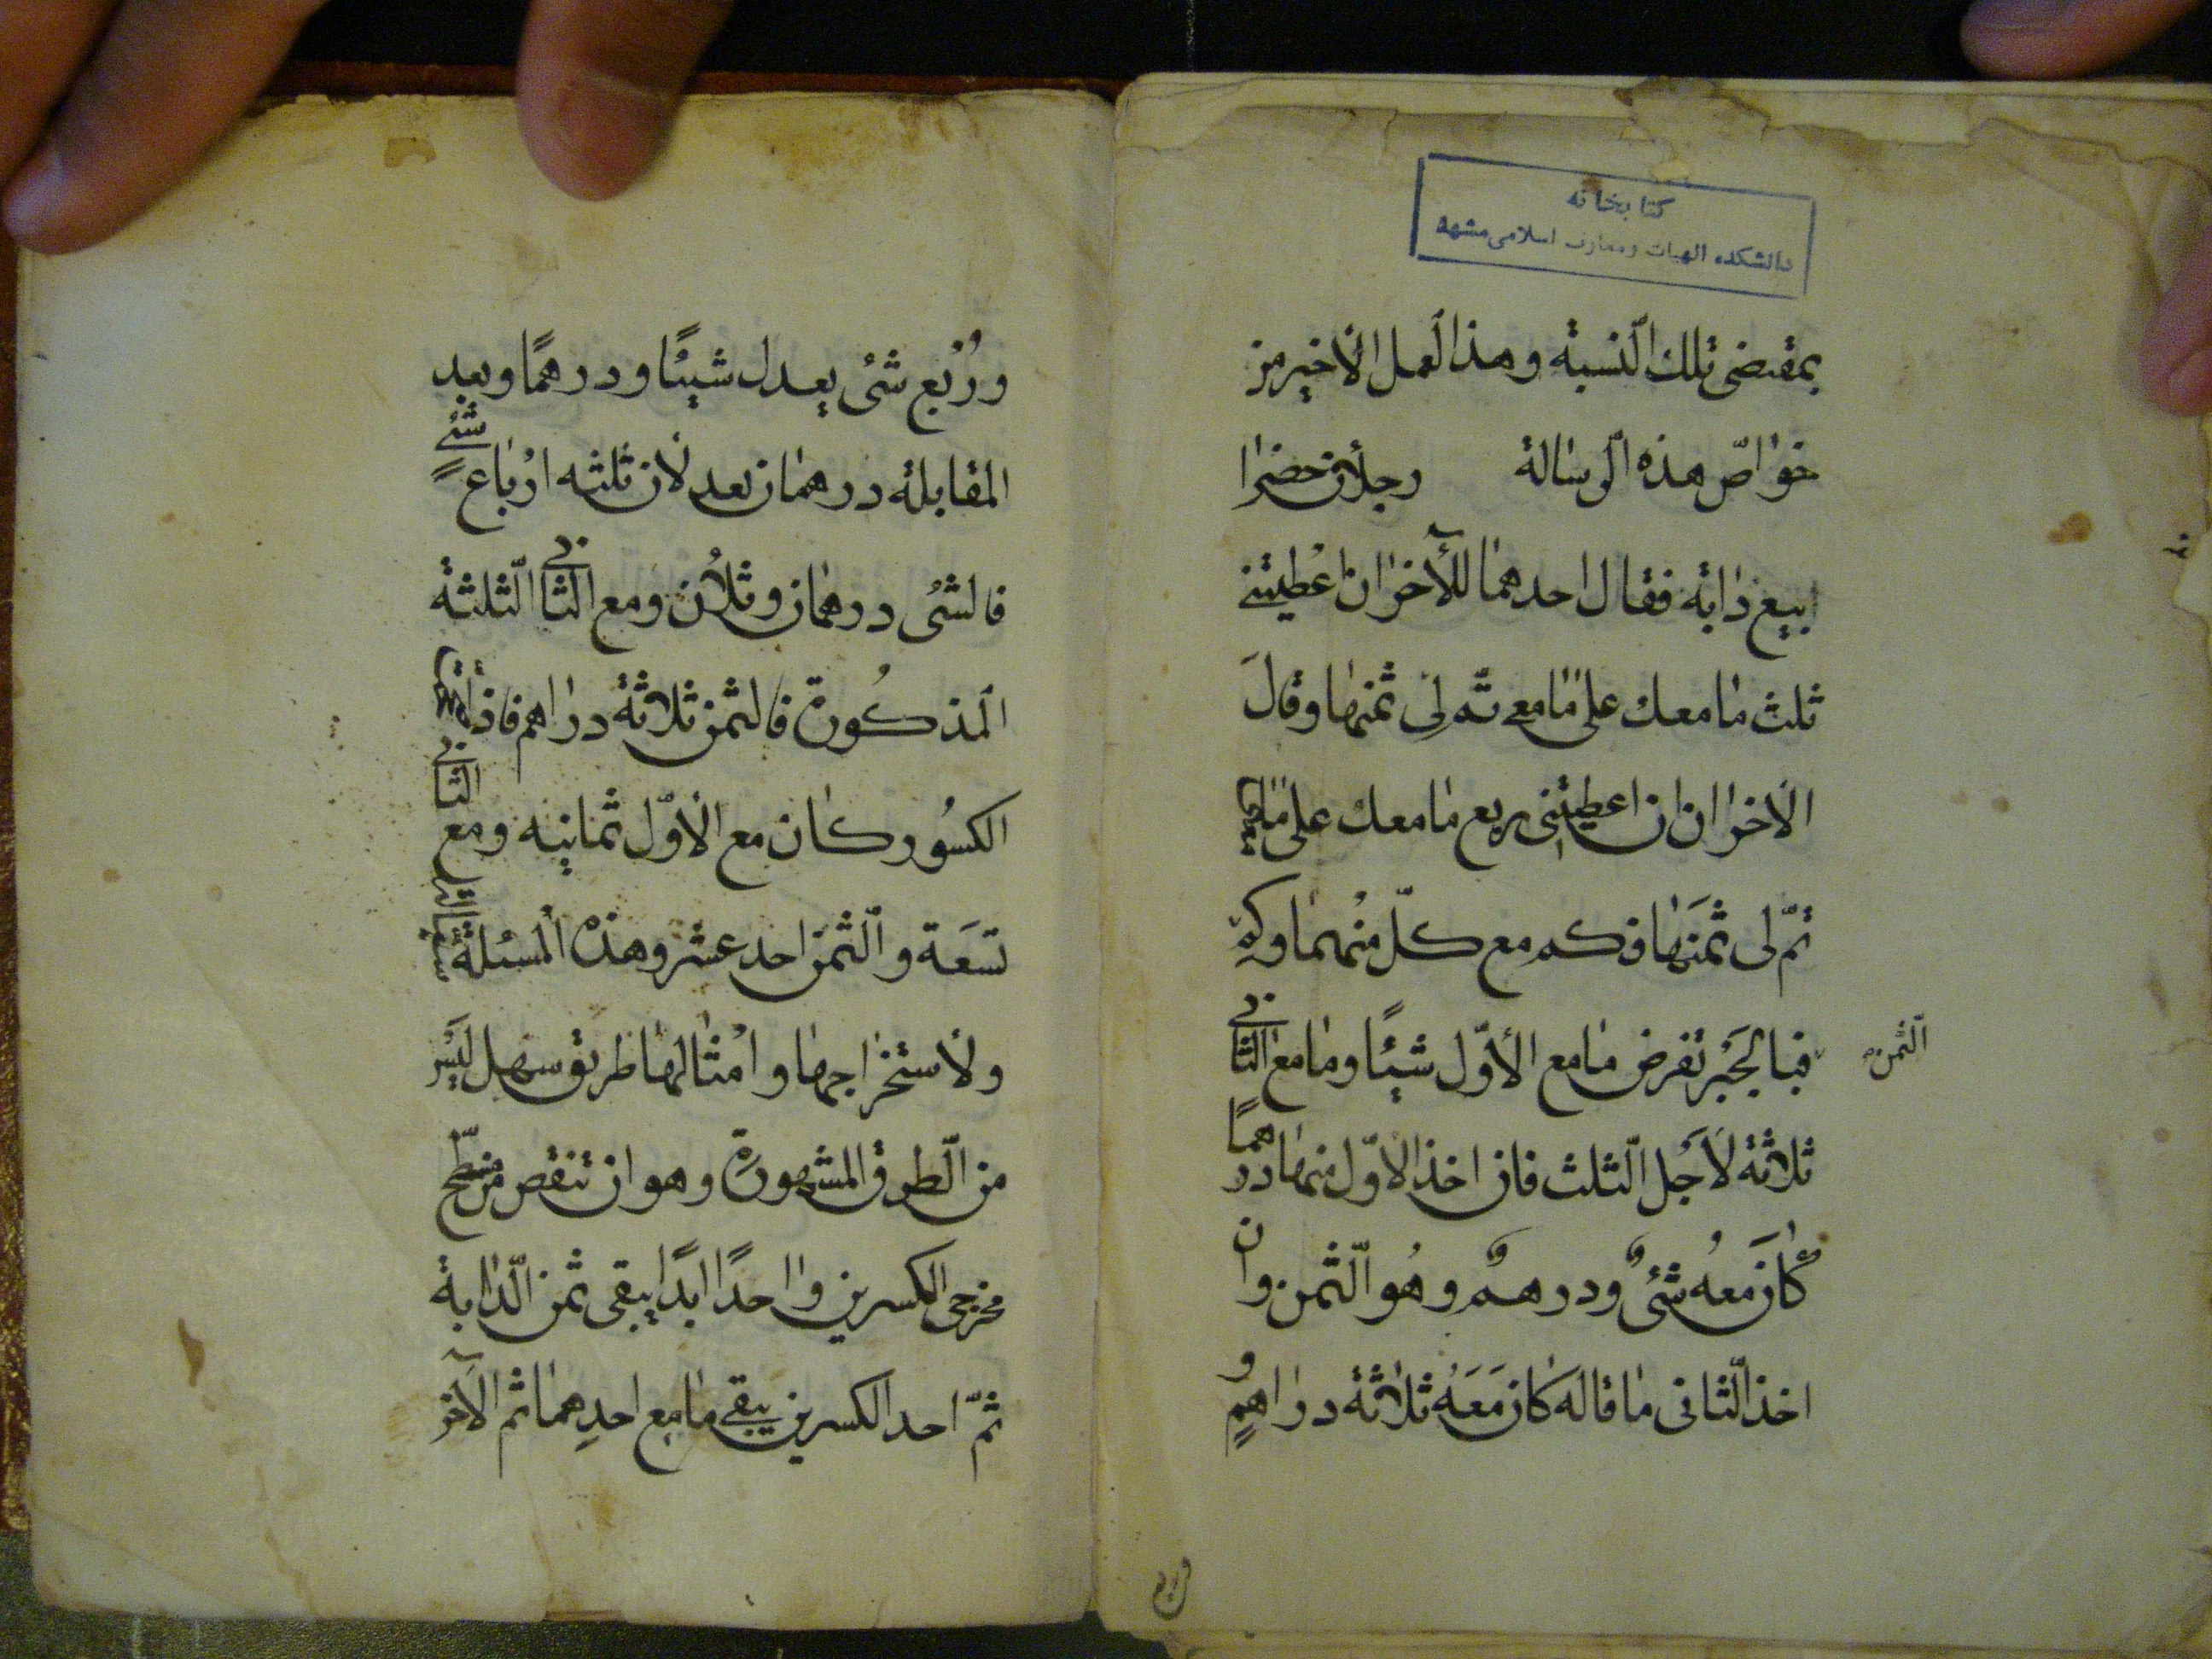 كتابخانه
دانشكده الهيات ومعارف اسلامى مشهد
بمقتضى تلك النّسبة وهذا لعمل الاخير من
خواصّ هذه الرّسالة رجلان حضرا
ابيع دابة فقال احدهما للآخر ان اعطيتنى
ثلث ما معك على ما معى تم لى ثمنها وقال
الاخر ان ان اعطيتنى ربع ما معك على ما
تمّ لى ثمنها فكم مع كلّ منهما وكم
الثّمن
فبالجَبْر تفرض ما مع الأوّل شيئًا وما مع الثّانى
ثلاثة لاَجْل الثّلث فان اخذ الاوّل منها درهمًا
كان معه شىء ودرهم وهُو الثّمن وان
اخذ الثّانى ما قاله كان مَعَهُ ثلاثة دراهم
و
ورُبْع شىء يعدل شيئًا ودرهمًا وبعد
المقابلة درهمان تعدلان ثلثه ارْباع شىء
فالشىء درهمان وثلثان ومع الثّانى الثّلثة
المذكُورة فالثمن ثلاثة دراهم فاذا
الكسُور كان مع الأوّل ثمانيه ومع الثّانى
تسعَة والثمن احد عشر وهذه المسئلة
ولاستخراجها وامْثالها طريق سهل ليْسَ
من الطّرق المشهورة وهو ان تنقص من سطّح
مخرجى الكسرين واحدًا ابدًا يبقى ثمن الدّابة
ثمّ احد الكسرين يبقى ما مع احدِهما ثم الآخر